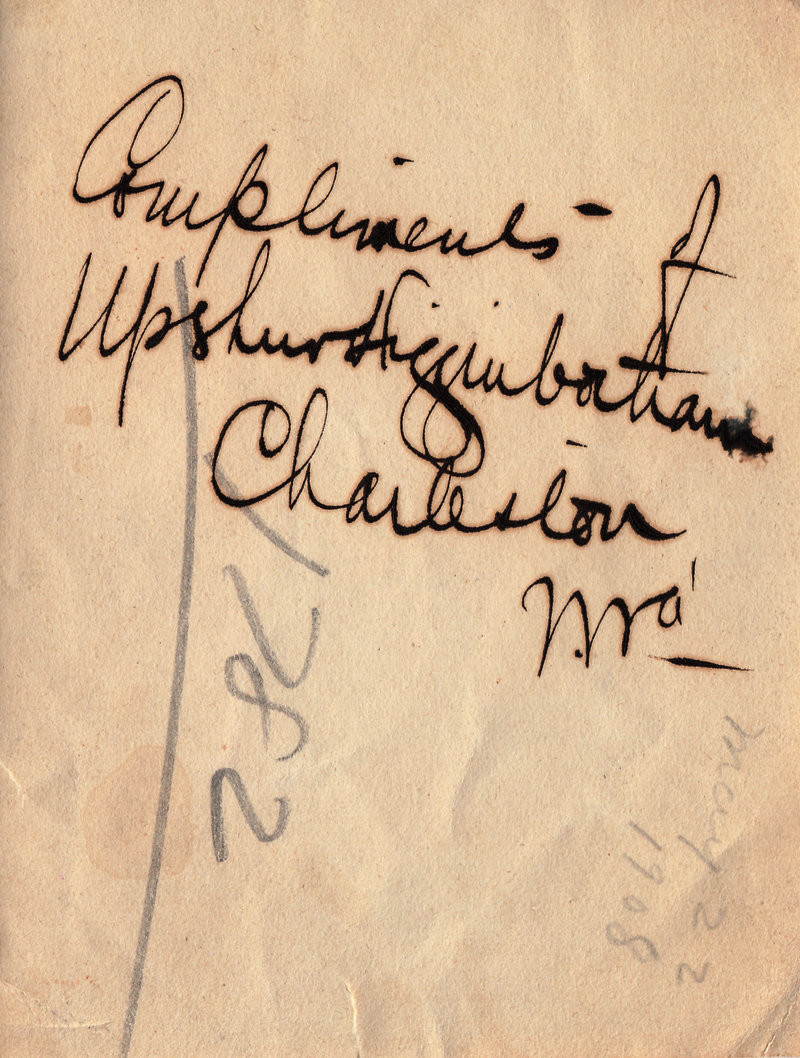 Compliments - of
Upshur Higginbotham
Charleston
W. Va
1782
May 22
1908